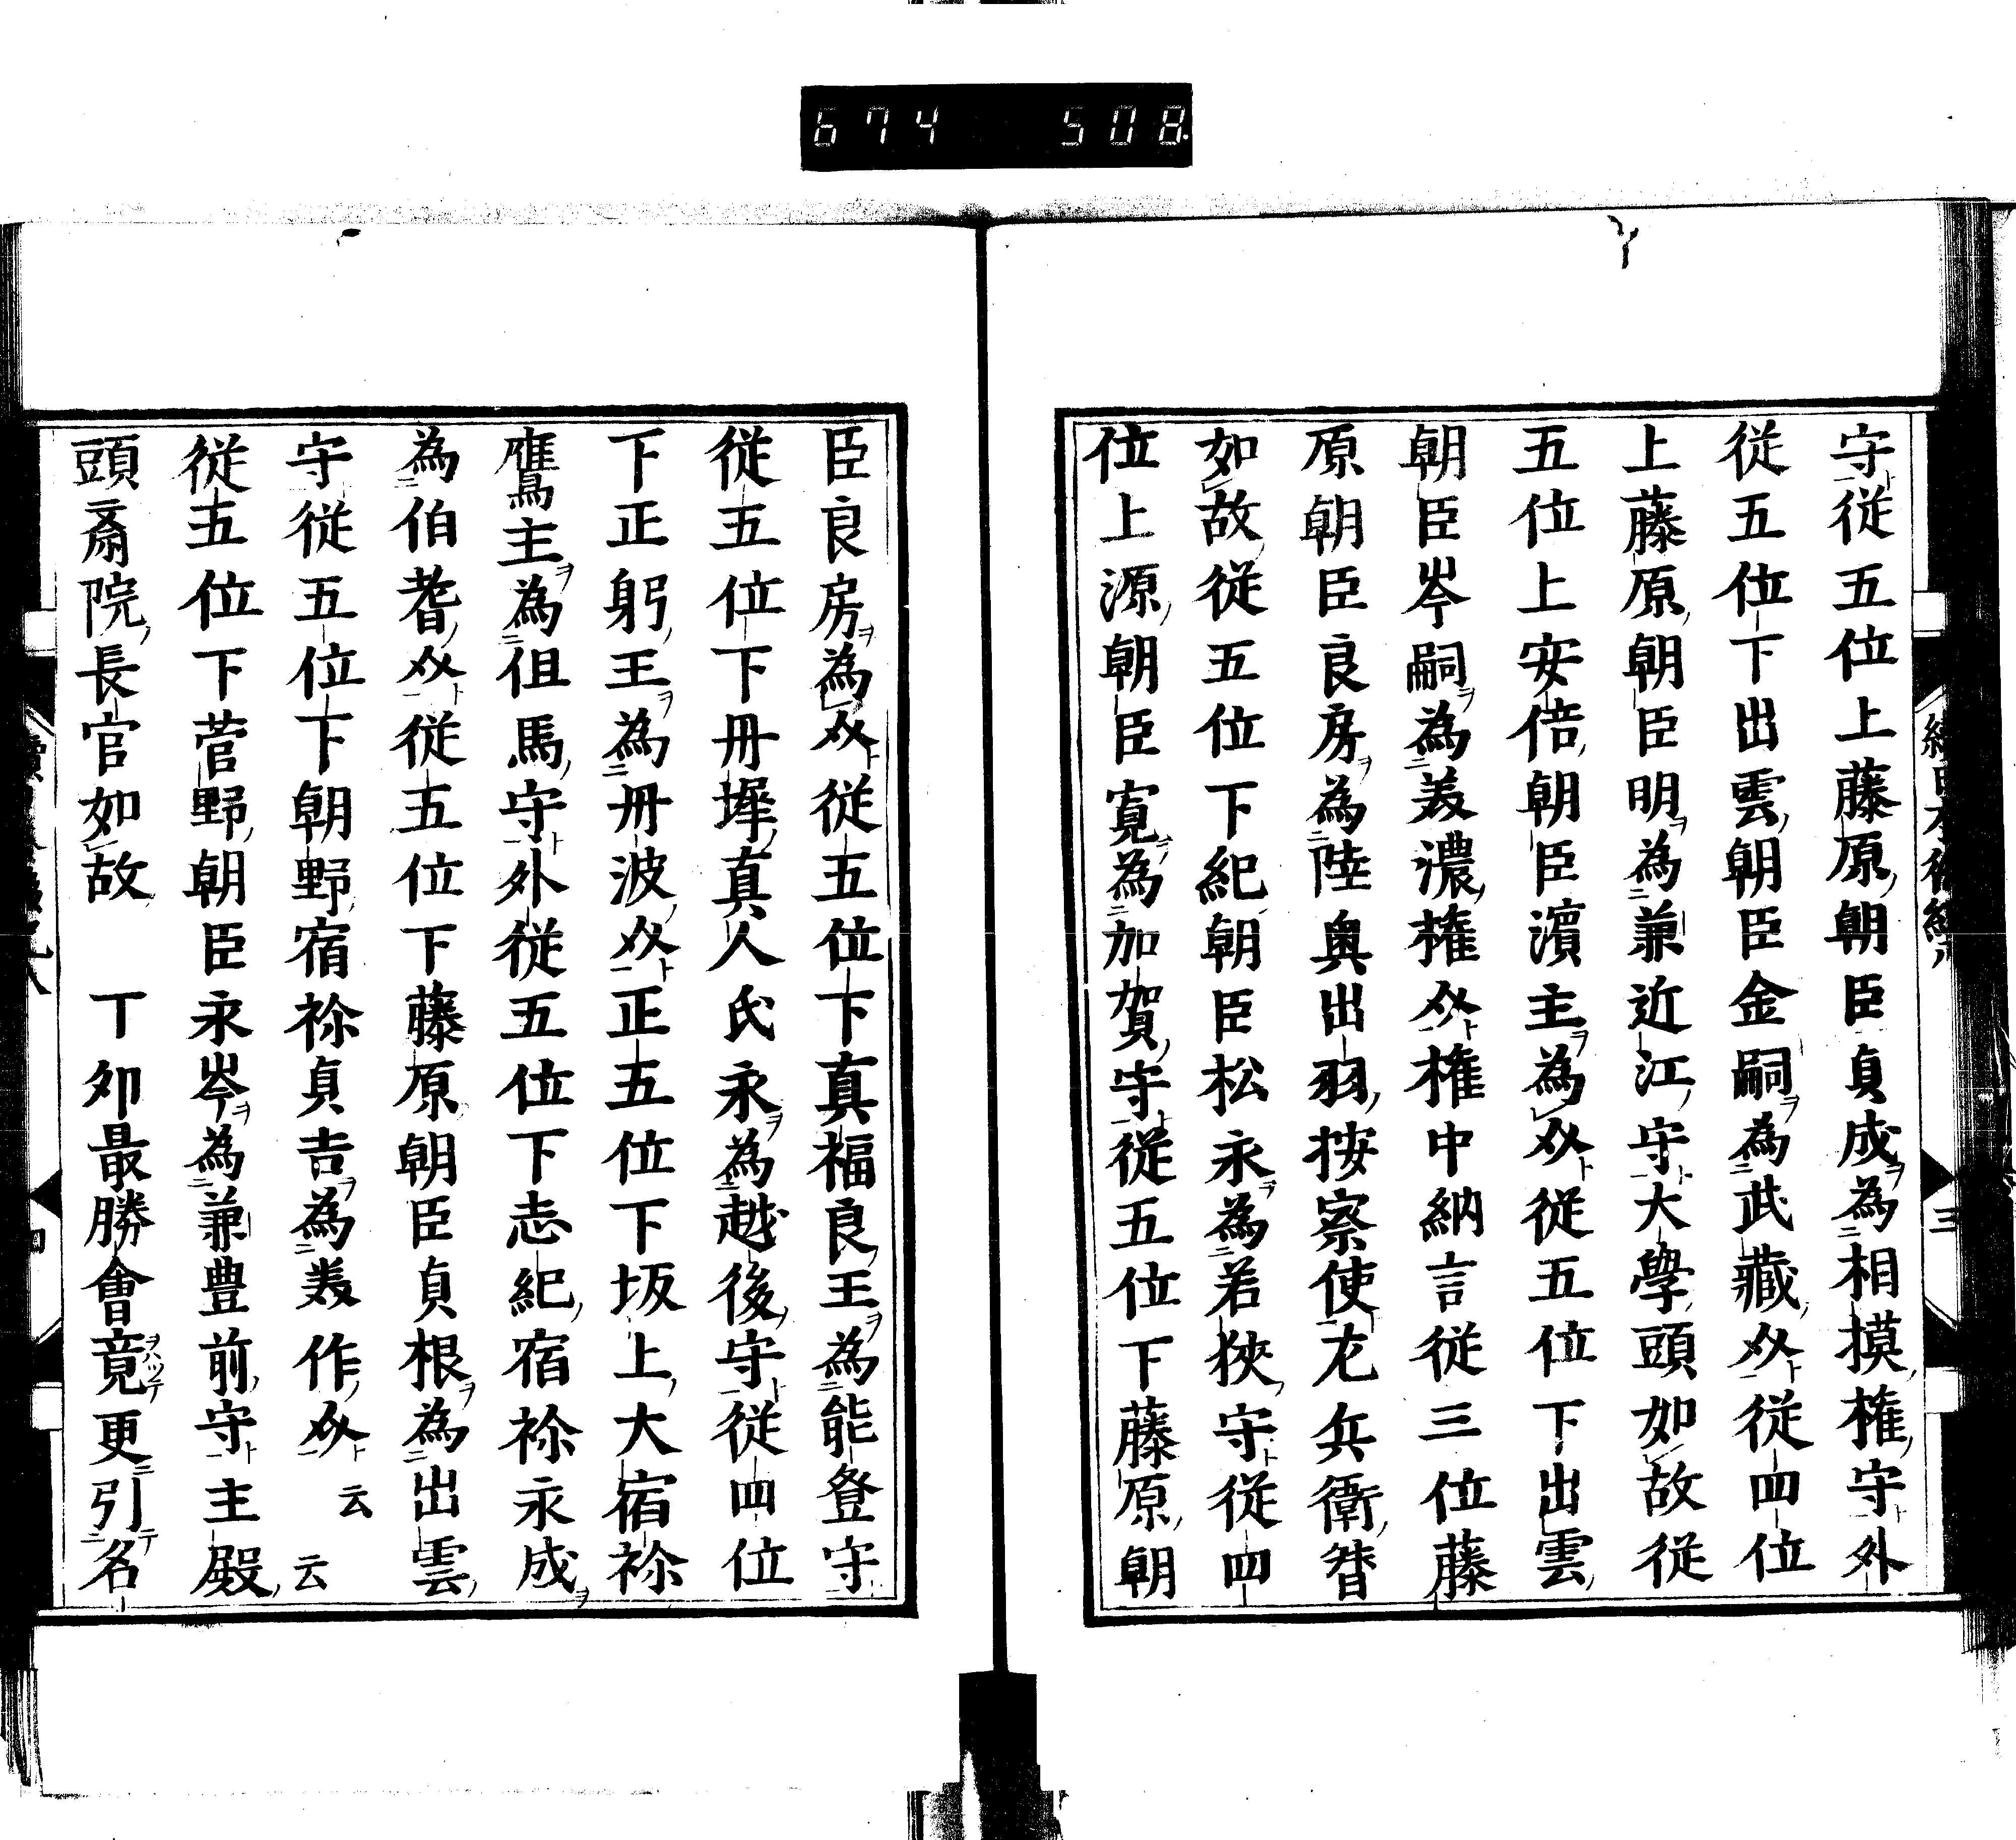 674 508
守從五位上藤原朝臣貞成為相摸權守外
從五位下出雲朝臣金嗣為武藏介從四位
上藤原朝臣明為兼近江守大學頭如故從
五位上安倍朝臣濱主為介從五位下出雲
朝臣岑嗣為美濃權介權中納言從三位藤
原朝臣良房為陸奥出羽按察使左兵衛督
如故從五位下紀朝臣松永為若狹守從四
位上源朝臣寛為加賀守從五位下藤原朝
三
臣良房為介從五位下真福良王為能登守
從五位下丹墀真人氏永為越後守從四位
下正躬王為丹波介正五位下坂上大宿祢
鷹主為但馬守外從五位下志紀宿祢永成
為伯耆介從五位下藤原朝臣貞根為出雲
守從五位下朝野宿祢貞吉為美作介云云
從五位下菅野朝臣永岑為兼豊前守主殿
頭斎院長官如故 丁卯最勝會竟更引名